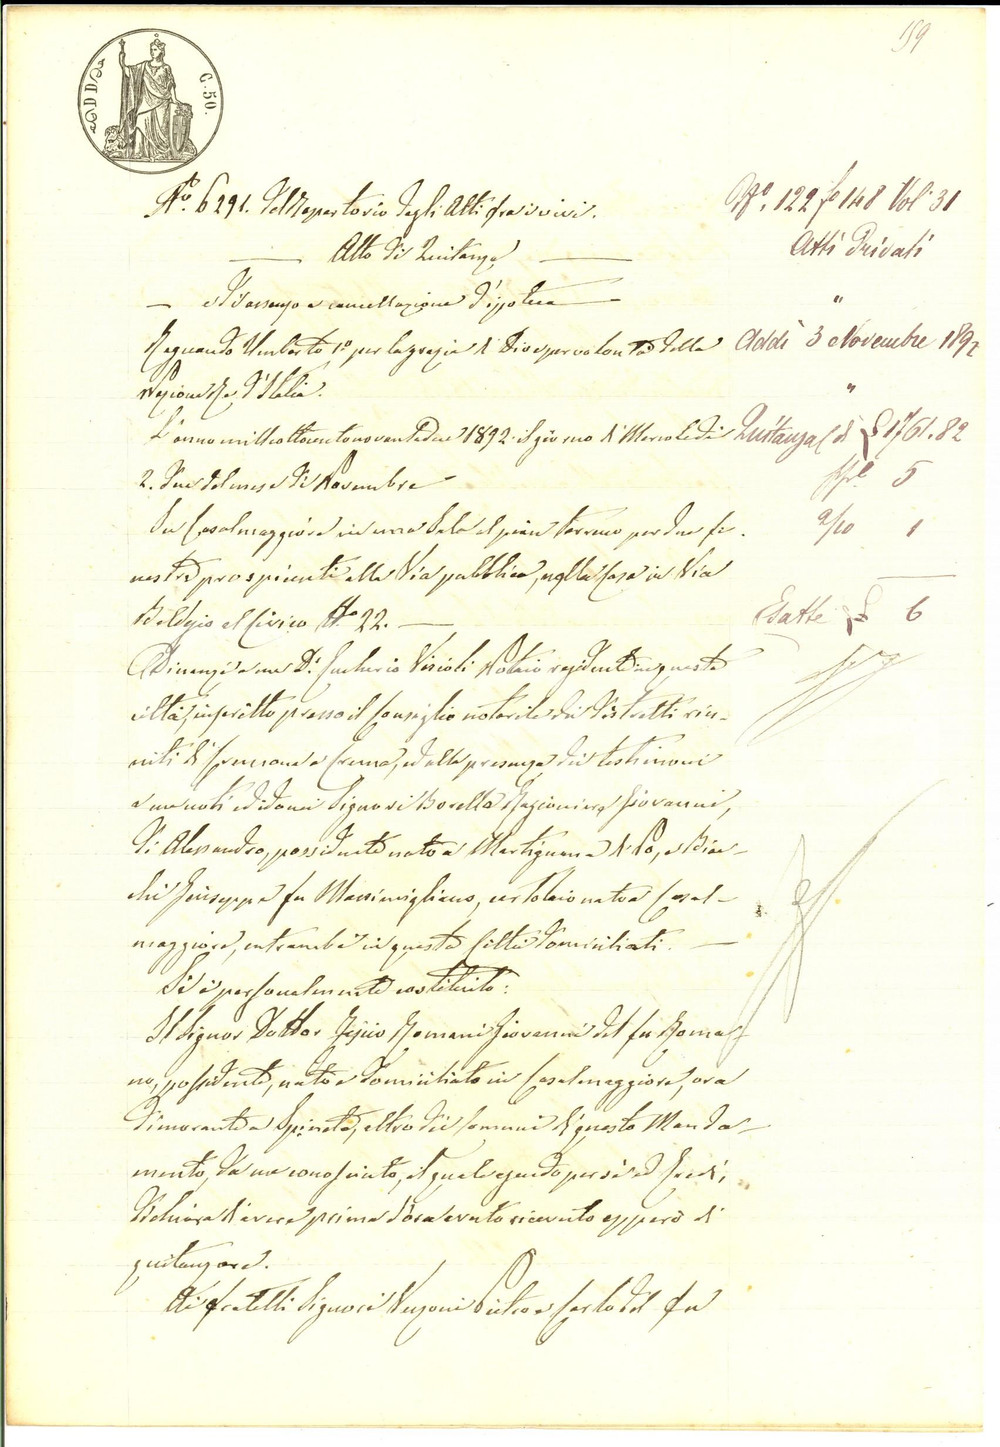 159
C. 50.
No. 6291. del Repertorio degli Atti fra i vivi.
Atto di Quitanza
e di assenso a cancellazione d'ipoteca
Regnando Umberto 1o. per la grazia di Dio e per volontà della
Nazione Re d'Italia.
L'anno milleottocentonovantadue 1892. il giorno di Mercoledì
2. due del mese di Novembre
In Casalmaggiore in una Sala al pian terreno per due fi-
nestre prospicienti alla Via pubblica, nella Casa in Via
al Civico No. 22.
Dinanzi a me Dr. Vizioli Notaio residente in questa
città, inscritto presso il Consiglio notarile dei distretti riu-
niti di Cremona e Crema, ed alla presenza dei testimoni
a me noti ed idonei Signori Borella Ragioniere Giovanni,
di Alessandro, possidente nato a Martignana di Po, e Bian-
chi Giuseppe fu Massimigliano, cartolaio nato a Casal-
maggiore, entrambi in questa Città domiciliati.
Si è personalmente costituito:
Il Signor Dottor Romani Giovanni del fu Roma-
no, possidente, nato e domiciliato in Casalmaggiore, ora
dimorante a Spineda, altro dei Comuni di questo Manda-
mento, da me conosciuto, il quale agendo per sè ed Eredi,
dichiara di avere prima d'ora avuto ricevuto epperò di
quitanzare.
Ai fratelli Signori Pietro e Carlo del fu
No. 122 fo 148 Vol. 31
Atti Privati
"
Addì 3 Novembre 1892
"
Quitanza di £ 1761.82
5
2/10 1
Esatte £ 6